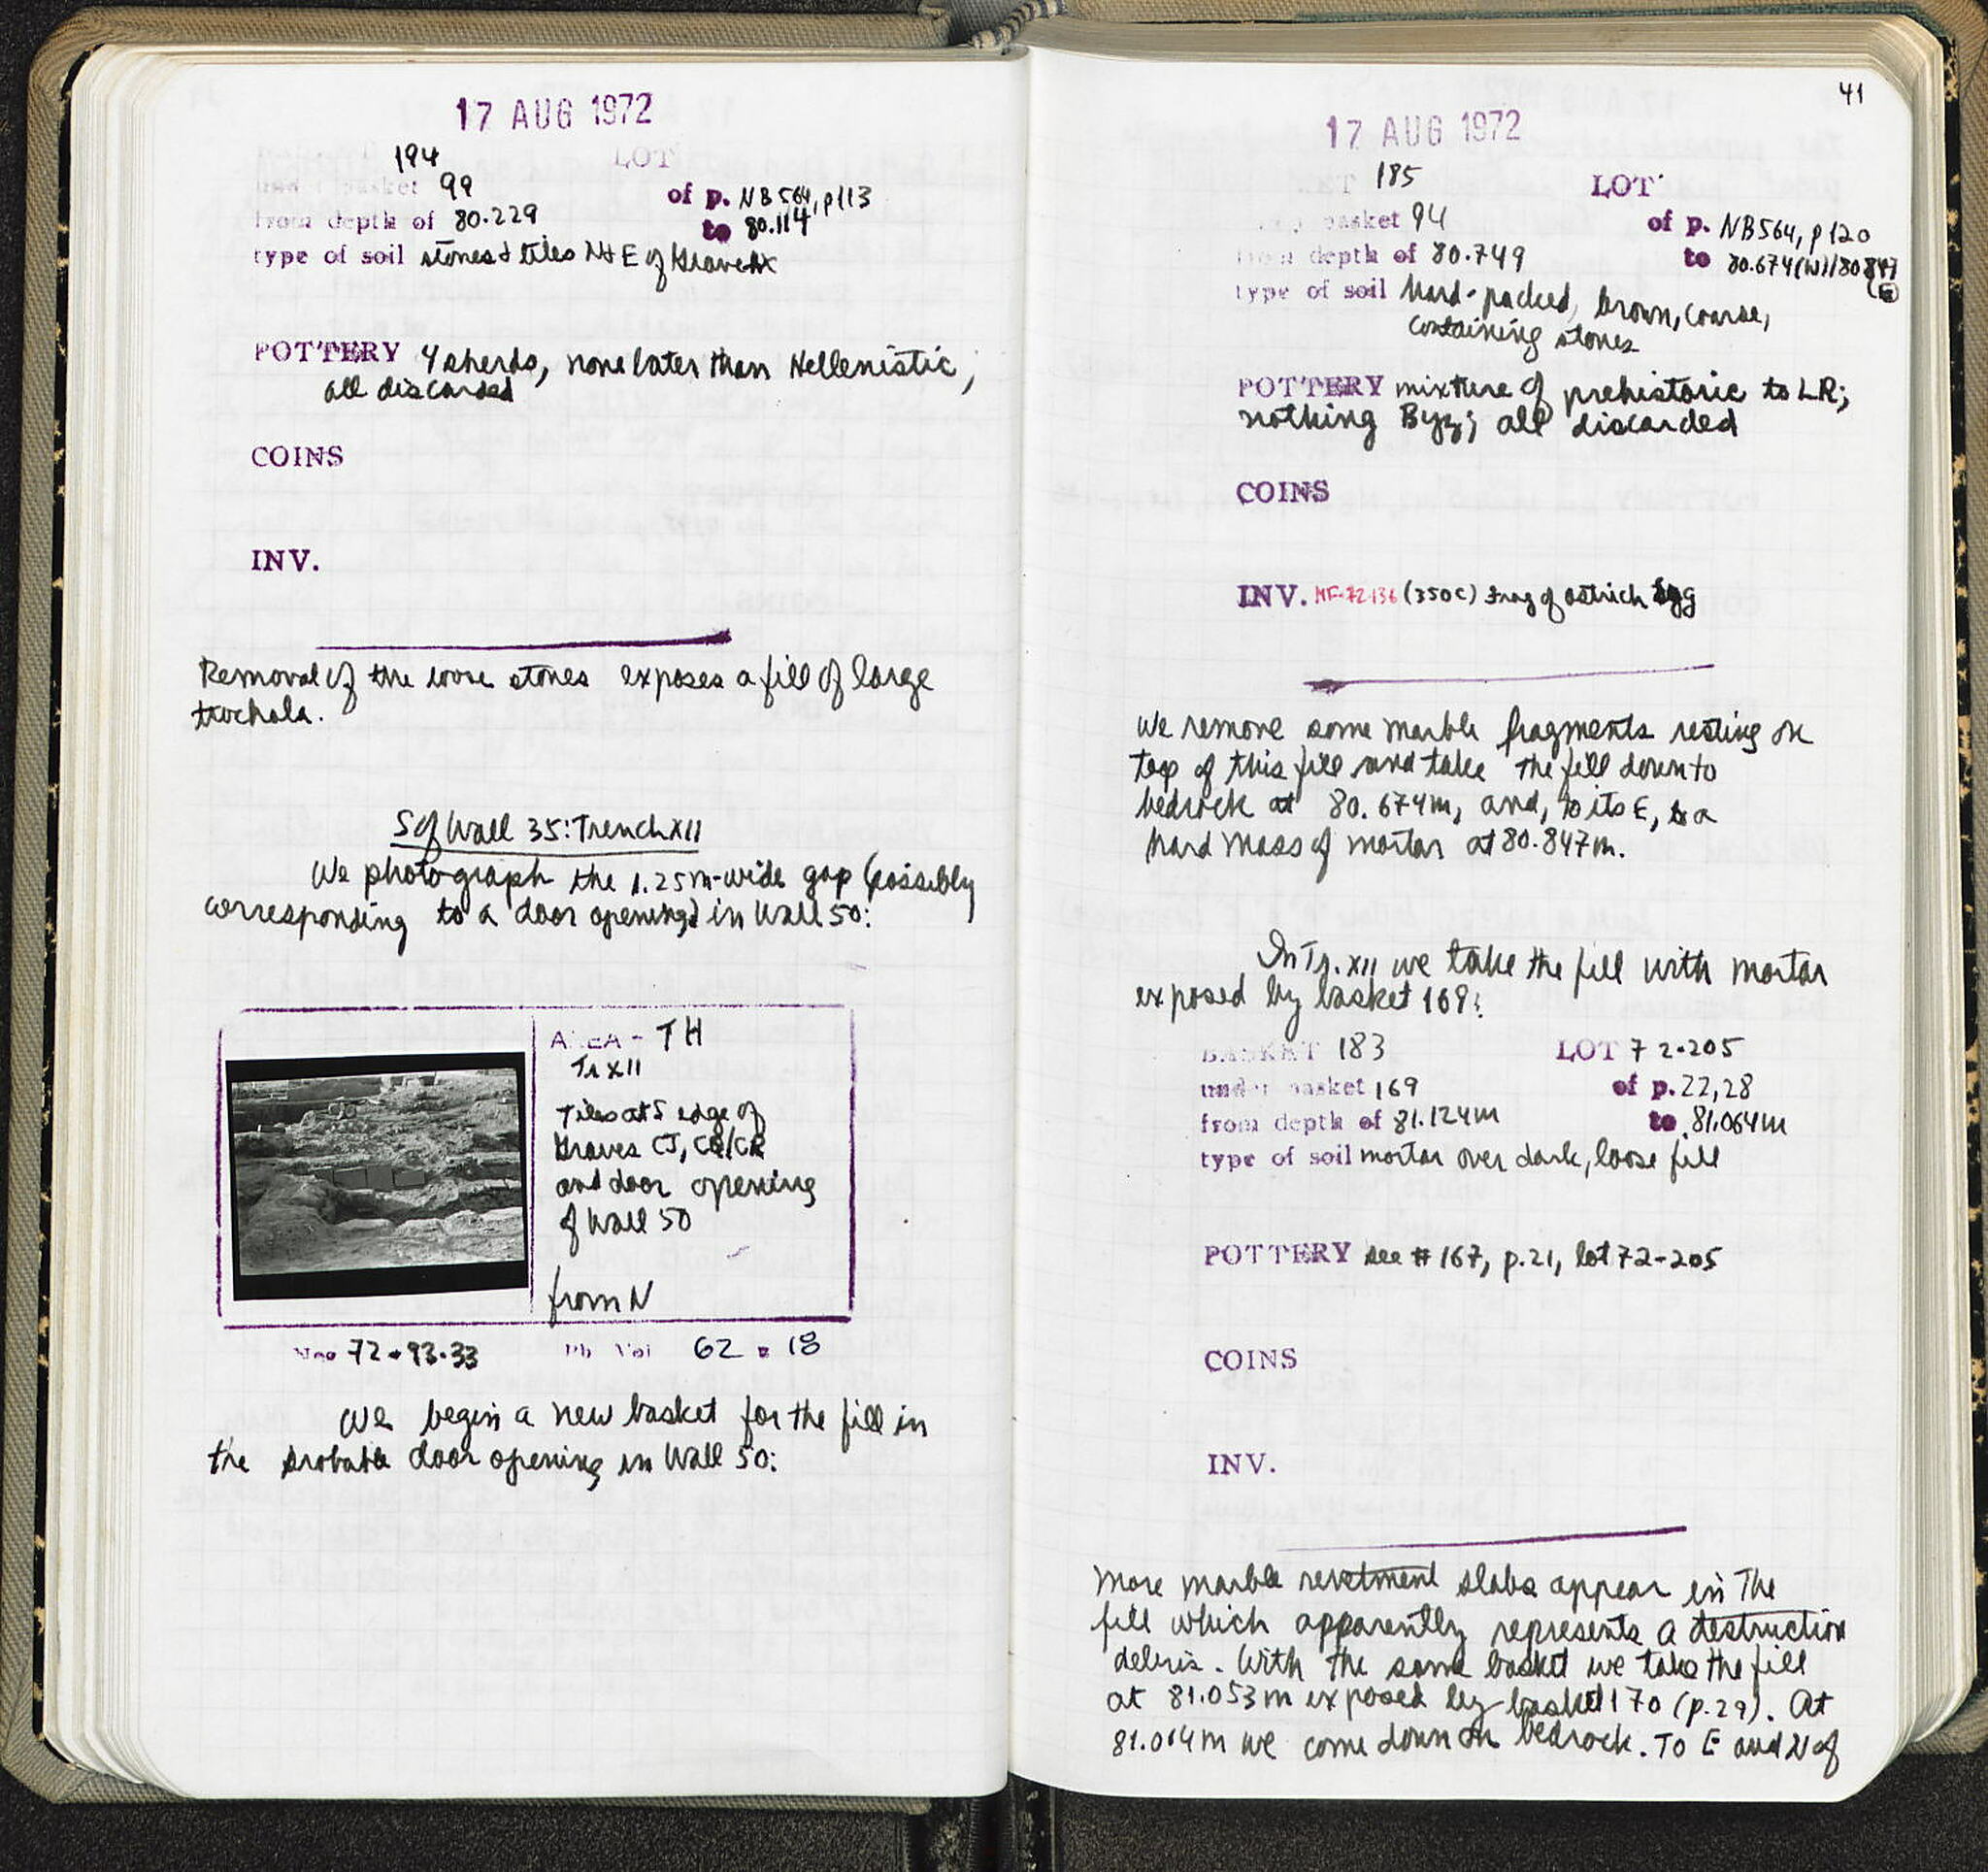 17 AUG 1972
194 LOT
under basket 99 of p. NB 564, p113
from depth of 80.229 to 80.114
type of soil stones & tiles N & E of Grave
POTTERY 4 sherds, none later than Hellenistic;
all discarded
COINS
INV.
Removal of the loose stones exposes a fill of large
trochala.
S of Wall 35: Trench XII
We photograph the 1.25m-wide gap (possibly
corresponding to a door opening) in Wall 50:
AREA - TH
Tr XII
Tiles at S edge of
Graves CJ, CQ/CR
and door opening
of Wall 50
from N
Neg 72-93-33 Ph Vol 62 - 18
We begin a new basket for the fill in
the probable door opening in Wall 50:
41
17 AUG 1972
185 LOT
basket 94 of p. NB564, p120
from depth of 80.749 to 80.674(W)/80.847
(E)
type of soil hard-packed, brown, coarse,
containing stones
POTTERY mixture of prehistoric to LR;
nothing Byz; all discarded
COINS
INV. MF-72-136 (350c) Frag of ostrich Egg
We remove some marble fragments resting on
top of this fill and take the fill down to
bedrock at 80.674m, and, to its E, to a
hard mass of mortar at 80.847m.
In Tr. XII we take the fill with mortar
exposed by basket 169:
BASKET 183 LOT 72-205
under basket 169 of p. 22,28
from depth of 81.124m to 81.064m
type of soil mortar over dark, loose fill
POTTERY see #167, p.21, lot 72-205
COINS
INV.
More marble revetment slabs appear in the
fill which apparently represents a destruction
debris. With the same basket we take the fill
at 81.053m exposed by basket 170 (p.29). At
81.064m we come down on bedrock. To E and N of